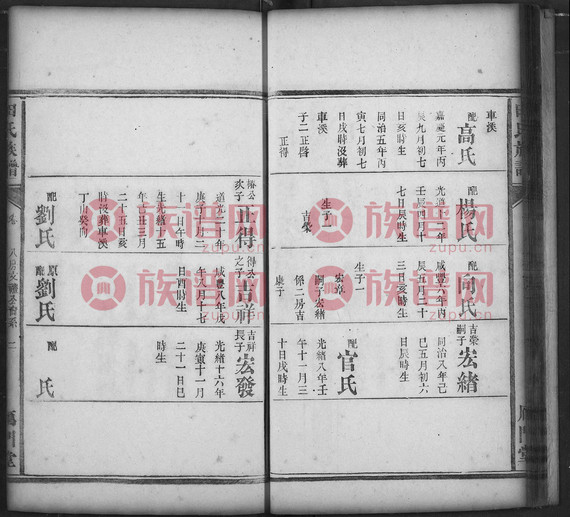 車溪
配高氏
嘉慶元年丙
辰九月初七
日亥時生
同治五年丙
寅七月初七
日戌時沒葬
車溪
子二正啓
正得
配楊氏
道光十二年
壬辰四月十
七日辰時生
生子一
吉榮
配向氏
咸豐六年丙
辰五月二十
三日亥時生
生子一
宏緒
嗣子宏緒
係二房吉
康子
吉榮嗣子宏緒
同治八年己
巳五月初六
日辰時生
配官氏
光緒八年壬
午十一月三
十日戌時生
雁門堂
椿公次子正得
道光二十年
庚子十月二
十一日午時
生光緒十五
年丑三月
二十五日亥
時沒葬車溪
丁山癸向
配劉氏
得公之子吉祥
咸豐八年戊
午八月十七
日酉時生
原配劉氏
吉祥長子宏發
光緒十六年
庚寅十一月
二十一日巳
時生
配 氏
氏族譜
雁門堂
族谱网
zupu.cn